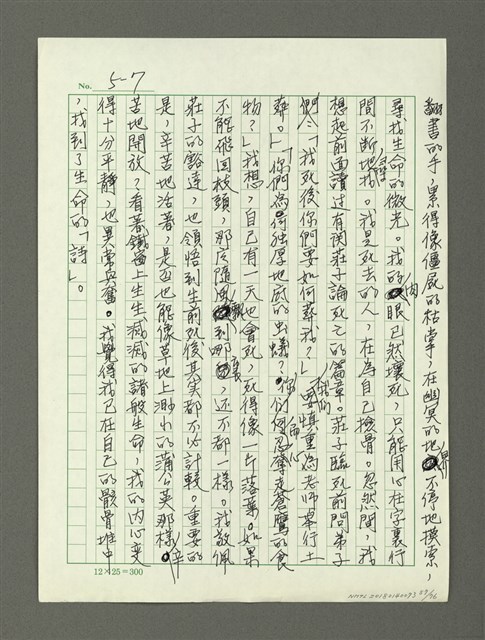 No. 5-7
翻書的手，累得像僵屍的枯掌，在幽冥的地界不停地摸索，
尋找生命的微光。我的肉眼已然壞死，只能用心在字裏行
間不斷地尋找。我是死去的人，在為自己撿骨。忽然間，我
想起前面讀過有関莊子論死亡的篇章。莊子臨死前問弟子
們：「我死後你們要如何葬我？」「我們要慎重為老師舉行土
葬。」「你們為何独厚地底的虫蟻？你們何忍奪走蒼鷹的食
物？」我想，自己有一天也會死，死得像一片落葉。如果
不能飛回枝頭，那麼隨風飄到哪裏，還不都一樣。我敬佩
莊子的豁達，也領悟到生前死後其實都不必計較。重要的
是，辛苦地活著，是否也能像草地上渺小的蒲公英那樣，辛
苦地開放？看著鐵道上生生滅滅的諸般生命，我的內心變
得十分平靜，也異常興奮。我覺得我已在自己的骸骨堆中
，找到了生命的「詩」。
12×25=300